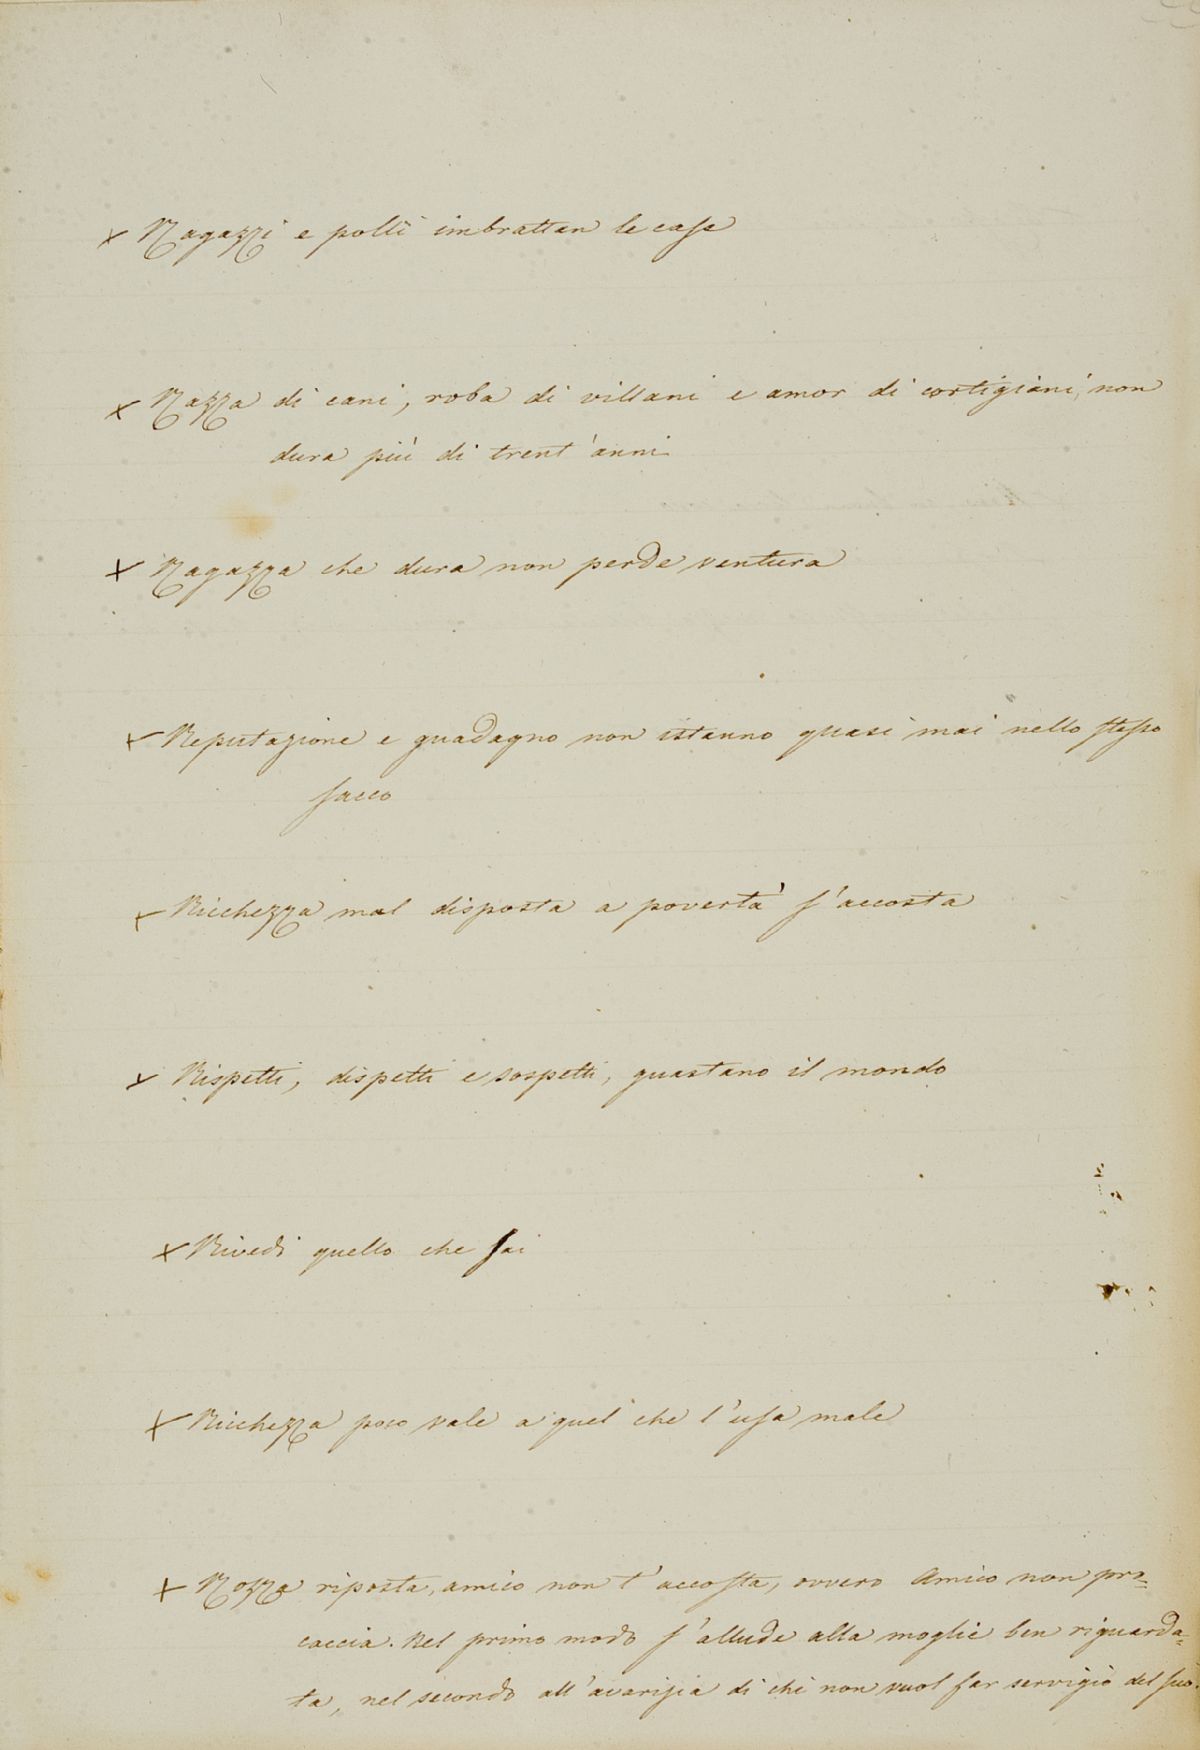 × Ragazzi e polli imbrattan le case
× Razza di cani, roba di villani e amor di cortigiani, non
dura più di trent'anni
× Ragazza che dura non perde ventura
× Reputazione e guadagno non istanno quasi mai nello stesso
sacco
× Ricchezza mal disposta a povertà s'accosta
× Rispetti, dispetti e sospetti, guastano il mondo
× Rivedi quello che sai
× Ricchezza poco vale a quel che l'usa male
× Rozza riposta, amico non t'accosta, ovvero Amico non pro=
caccia. Nel primo modo s'allude alla moglie ben riguarda=
ta, nel secondo all'avarizia di chi non vuol far servigio del suo.